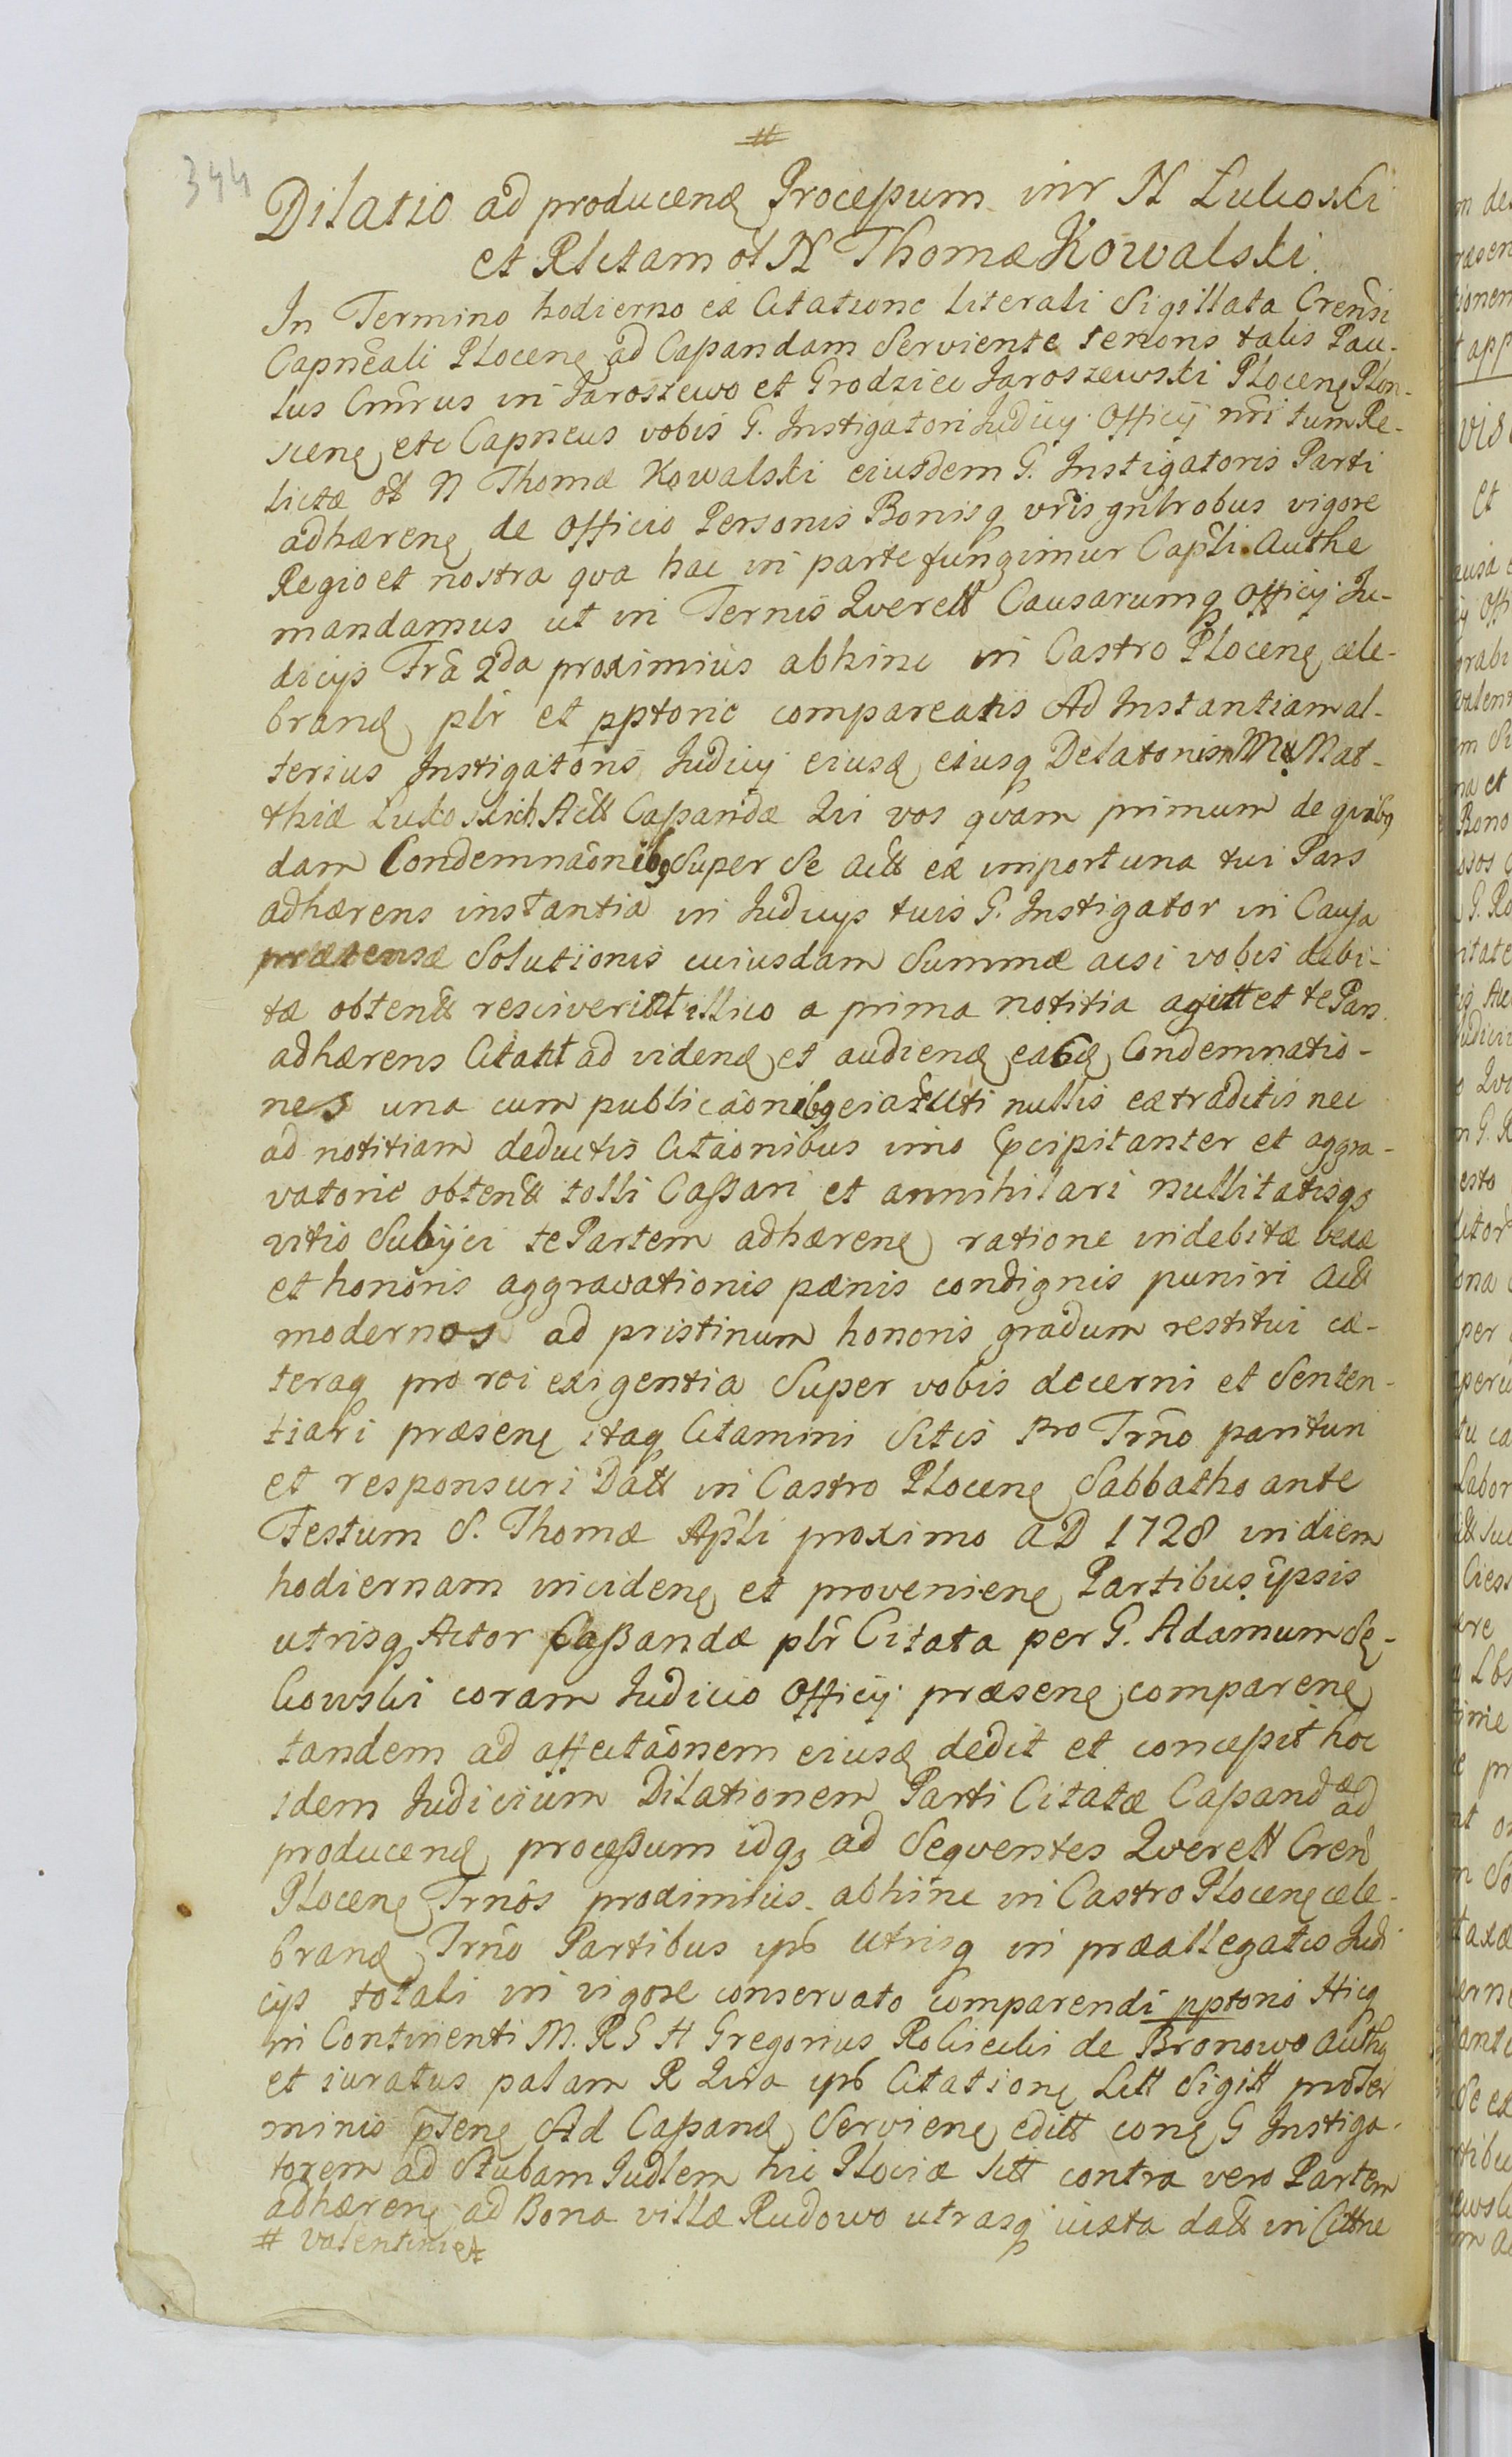 #
344
Dilatio ad producenꝫ Processum intr N Lukoski
et Rlictam ol N Thomæ Kowalski.
In Termino hodierno ex Citatione literali Sigillata Crensi
Capnĕali Plocenꝫ ad Cassandam Serviente tenoris talis Pau-
lus Cmrus in Jaroszewo et Grodziec Jaroszewski Plocenꝫ Plon-
scenꝫ etc Capneus vobis G. Instigatori Judicy Officij nri tum Re-
lictæ ol N Thomæ Kowalski eiusdem G. Instigatoris Parti
adhærenꝫ de Officio Personis Bonisq vris gnlrobus vigore
Regio et nostra qva hac in parte fungimur Capli Authe
mandamus ut in Ternis Qverell Causarumq Officij Ju-
dicys Fra 2da proximius abhinc in Castro Plocenꝫ cele-
branꝫ plr et pptorie compareatis Ad Instantiam al-
terius Instigatoris Judicy eiusꝫ eiusq Delatoris N M# Mat-
thiæ Lukoskich Actt Cassandæ Qui vos qvam primum de qvibq
dam Condemnaonibq Super Se Actt ex importuna tui Pars
adhærens instantia in Judicys tuis G. Instigator in Causa
prætensæ Solutionis cuiusdam Summæ acsi vobis debi-
tæ obtentt resciverint illico a prima notitia agitt et te Pars
adhærens Citatt ad videnꝫ et audienꝫ easdꝫ Condemnatio-
nes una cum publicaonibq eiar uti nullis extraditis nec
ad notitiam deductis Citaonibus imo Precipitanter et aggra-
vatorie obtentt tolli Cassari et annihilari nullitatisqꝫ
vitio Subijci te Partem adhærenꝫ ratione indebitæ vexæ
et honoris aggravationis pœnis condignis puniri Actt
modernos ad pristinum honoris gradum restitui cæ-
teraq pro rei exigentia Super vobis decerni et Senten-
tiari præsenꝫ itaq Citamini Sitis pro Trno parituri
et responsuri Datt in Castro Plocenꝫ Sabbatho ante
Festum S. Thomæ Apli proximo AD 1728 in diem
hodiernam incidenꝫ et provenienꝫ Partibus ipsis
utrisq Actor Cassandæ plr Citata per G. Adamum Sę-
kowski coram Judicio Officij præsenꝫ comparenꝫ
tandem ad affectaonem eiusꝫ dedit et concessit hoc
idem Judicium Dilationem Parti Citatæ Cassandæ ad
producenꝫ processum idqꝫ ad Seqventes Qverell Cren
Plocenꝫ Trnos proximius abhinc in Castro Plocenꝫ cele-
branꝫ Trno Partibus ips utrisq in præallegatis Judi
cys totali in vigore conservato comparendi pptorio Hicq
in Continenti M. R G H Gregorius Rokicki de Bronowo Authꝫ
et iuratus palam R Qvia ips Citationꝫ Litt Sigitt pro Ter
minis ptenꝫ Ad Cassanꝫ Servienꝫ editt conꝫ G Instiga-
torem ad Stubam Judlem hic Plociæ Sitt contra vero Partem
adhærenꝫ ad Bona villæ Rudowo utrasq iuxta datt in Cittne
# Valentini et